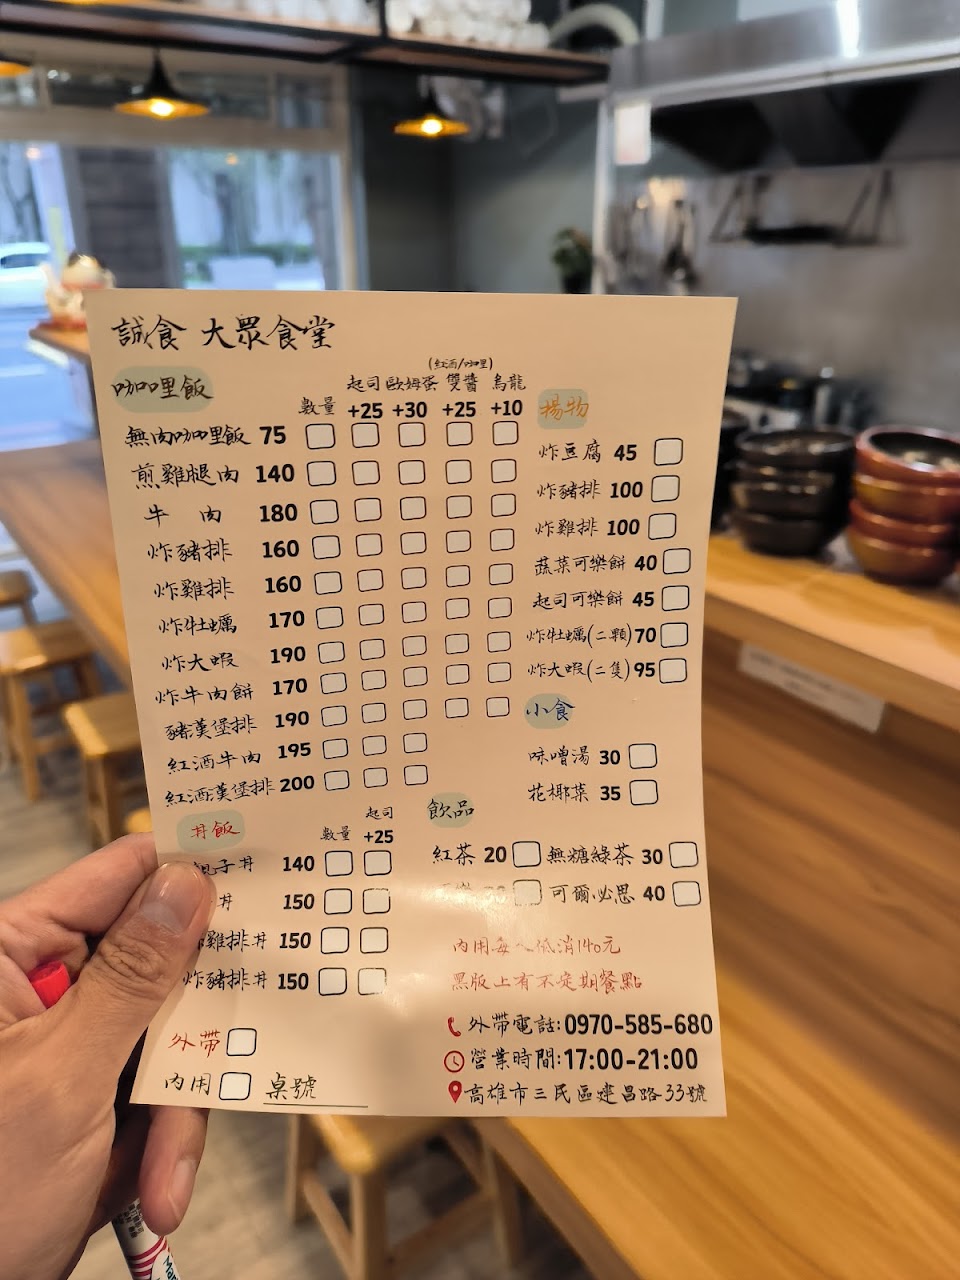 誠食 大眾食堂
咖哩飯
(紅酒/咖哩)
起司 歐姆蛋 雙醬 烏龍
數量 +25 +30 +25 +10
無肉咖哩飯 75
煎雞腿肉 140
牛 肉 180
炸豬排 160
炸雞排 160
炸牡蠣 170
炸大蝦 190
炸牛肉餅 170
豬漢堡排 190
紅酒牛肉 195
紅酒漢堡排 200
揚物
炸豆腐 45
炸豬排 100
炸雞排 100
蔬菜可樂餅 40
起司可樂餅 45
炸牡蠣(二顆) 70
炸大蝦(二隻) 95
小食
味噌湯 30
花椰菜 35
丼飯
起司
數量 +25
親子丼 140
丼 150
雞排丼 150
炸豬排丼 150
飲品
紅茶 20 無糖綠茶 30
可爾必思 40
內用每人低消140元
黑版上有不定期餐點
外帶
內用 桌號
外帶電話:0970-585-680
營業時間:17:00-21:00
高雄市三民區建昌路33號